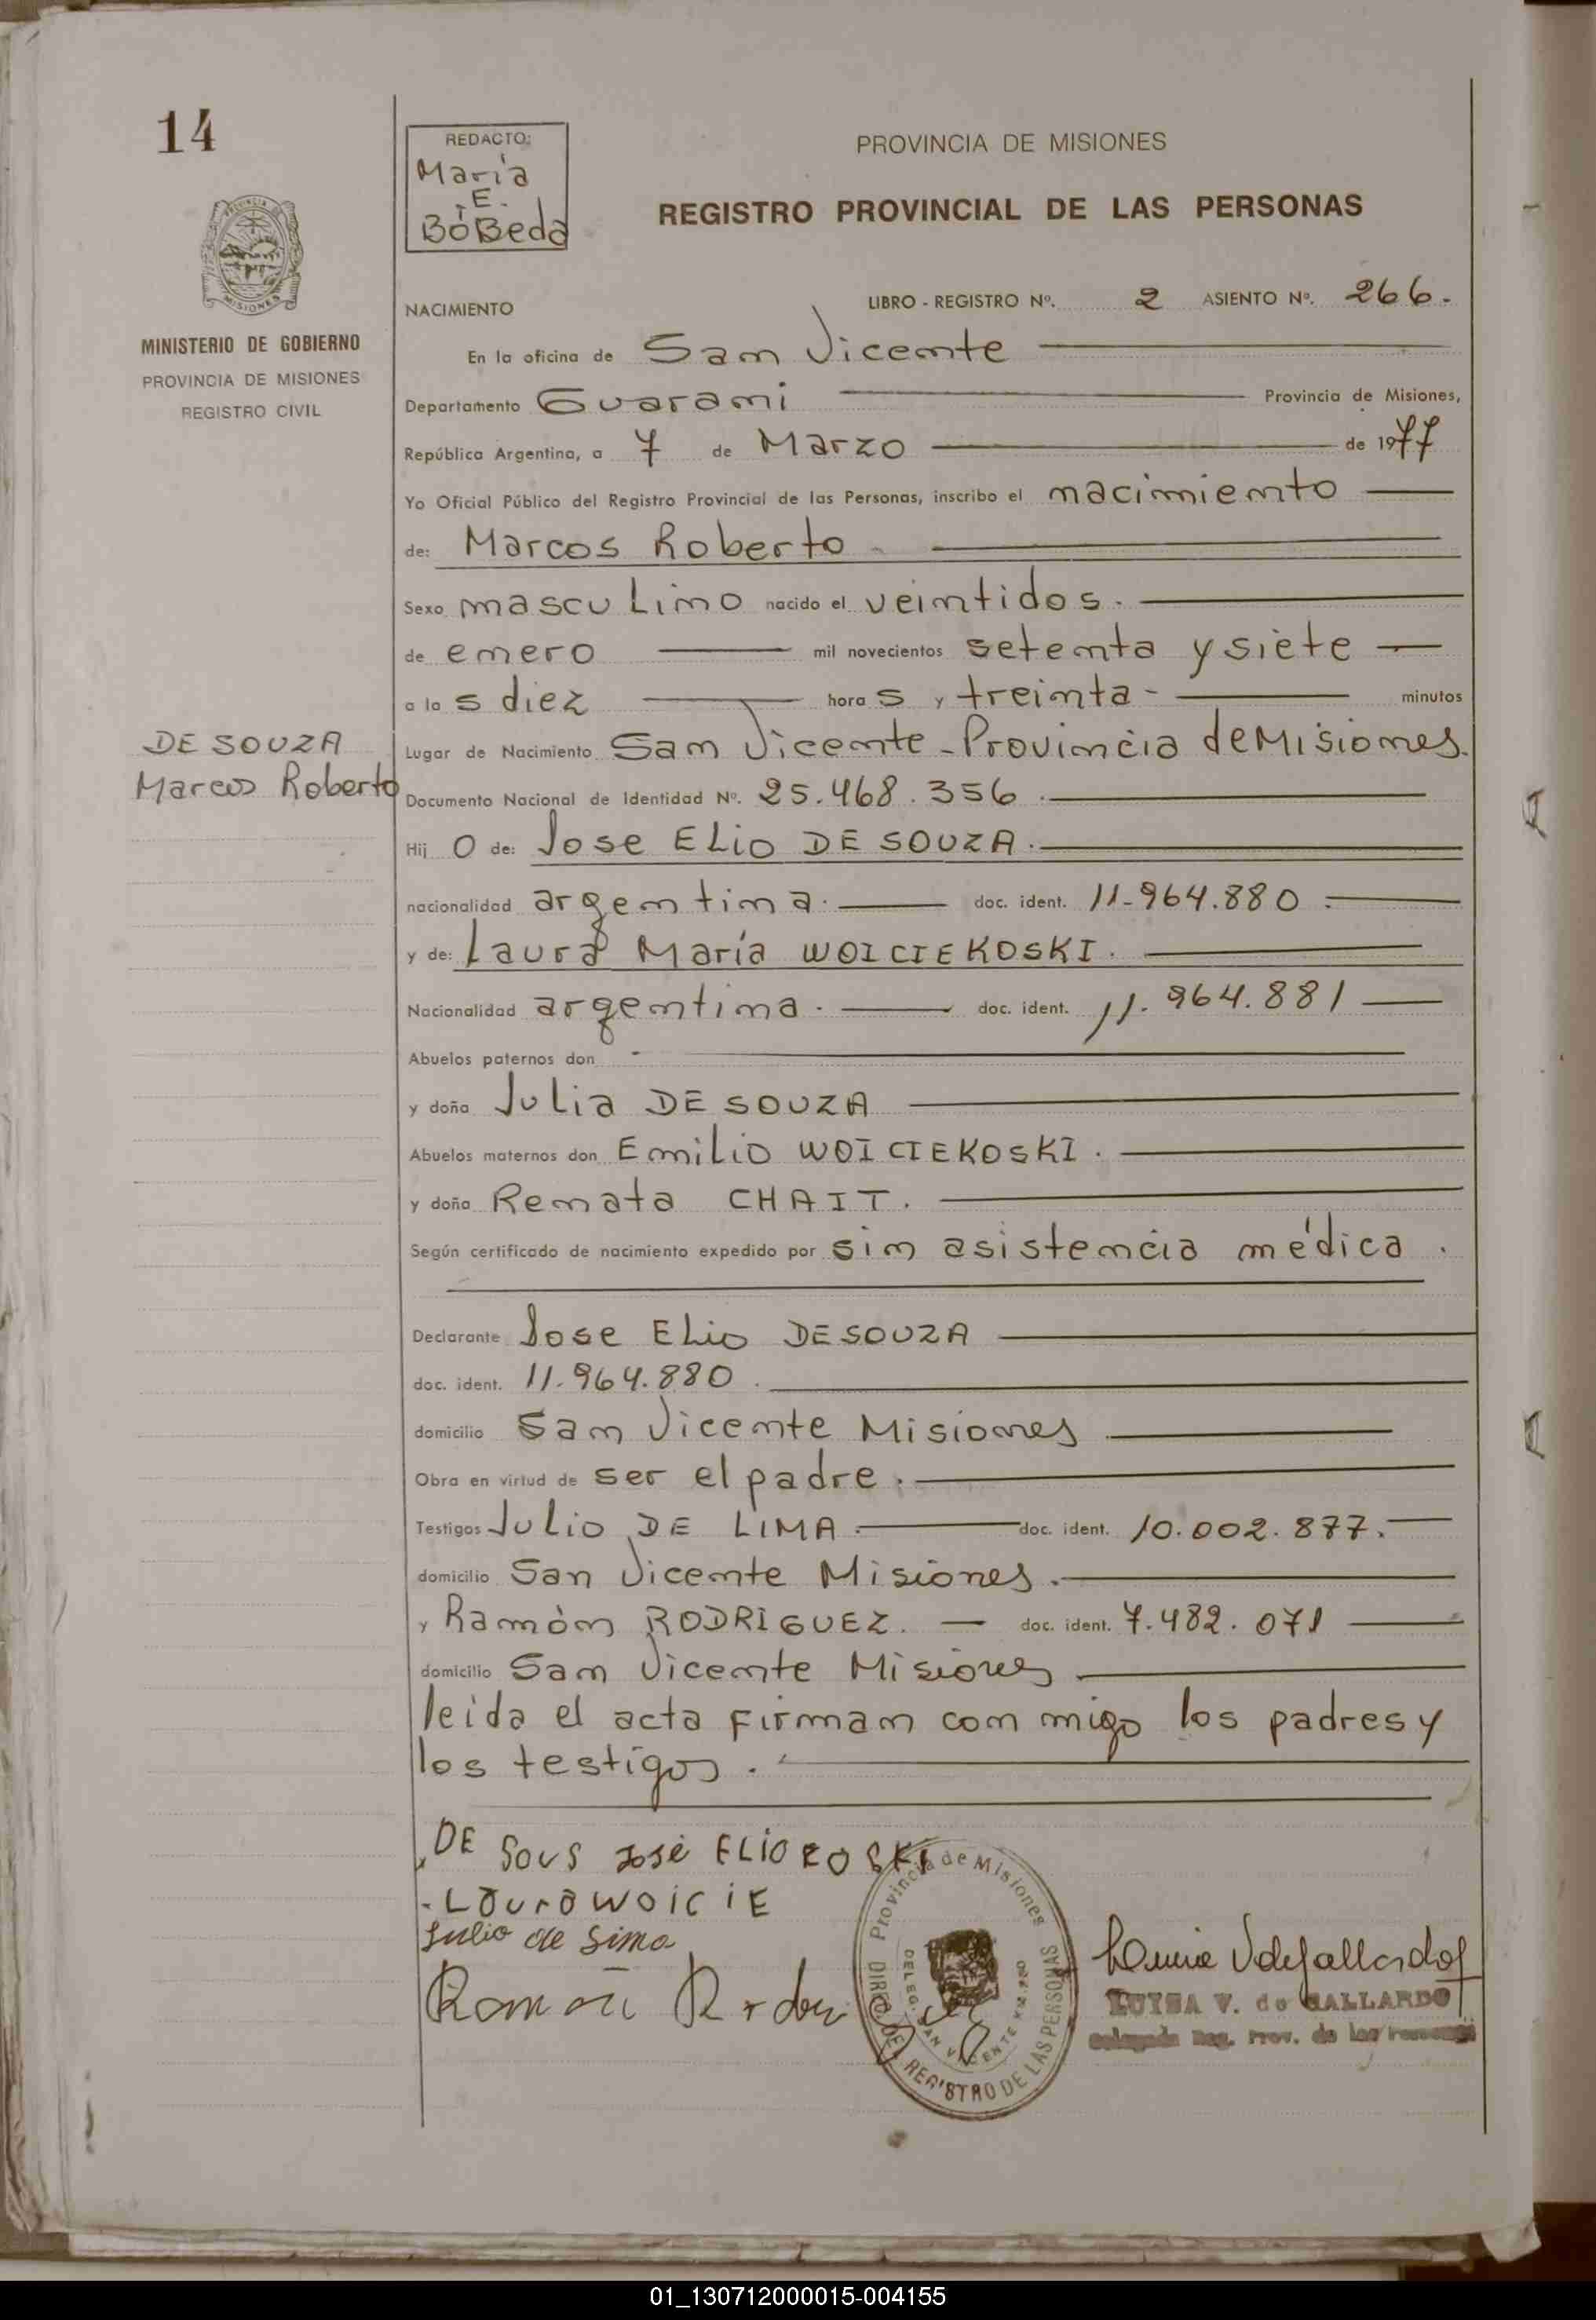 14
REDACTO:
María
E.
BoBeda
PROVINCIA DE MISIONES
REGISTRO PROVINCIAL DE LAS PERSONAS
MINISTERIO DE GOBIERNO
PROVINCIA DE MISIONES
REGISTRO CIVIL
NACIMIENTO
LIBRO - REGISTRO Nº. 2 ASIENTO Nº. 266.
En la oficina de San Vicente
Departamento Guarani Provincia de Misiones,
República Argentina, a 7 de Marzo de 1977
Yo Oficial Público del Registro Provincial de las Personas, inscribo el nacimiento
de: Marcos Roberto
Sexo masculino nacido el veintidos.
de enero mil novecientos setenta y siete
a las diez horas y treinta minutos
Lugar de Nacimiento San Vicente - Provincia de Misiones.
DE SOUZA
Marcos Roberto
Documento Nacional de Identidad Nº. 25.468.356
Hijo de: Jose Elio DE SOUZA.
nacionalidad argentina. doc. ident. 11-964.880
y de: Laura María WOICIEKOSKI.
Nacionalidad argentina. doc. ident. 11.964.881
Abuelos paternos don -
y doña Julia DE SOUZA
Abuelos maternos don Emilio WOICIEKOSKI.
y doña Renata CHAIT.
Según certificado de nacimiento expedido por sin asistencia médica.
Declarante Jose Elio DE SOUZA
doc. ident. 11.964.880.
domicilio San Vicente Misiones
Obra en virtud de ser el padre.
Testigos Julio DE LIMA. doc. ident. 10.002.877.
domicilio San Vicente Misiones.
y Ramón RODRIGUEZ. doc. ident. 7.482.071
domicilio San Vicente Misiones
leida el acta firman con migo los padres y
los testigos.
DE SOUS JOSÉ ELIO KOSKI
LAURA WOICIE
Julio de Lima
Ramon
Provincia de Misiones
DELEG. SAN VICENTE
REGISTRO DE LAS PERSONAS
LUISA V. de GALLARDO
Delegada Reg. Prov. de las Personas
01_130712000015-004155